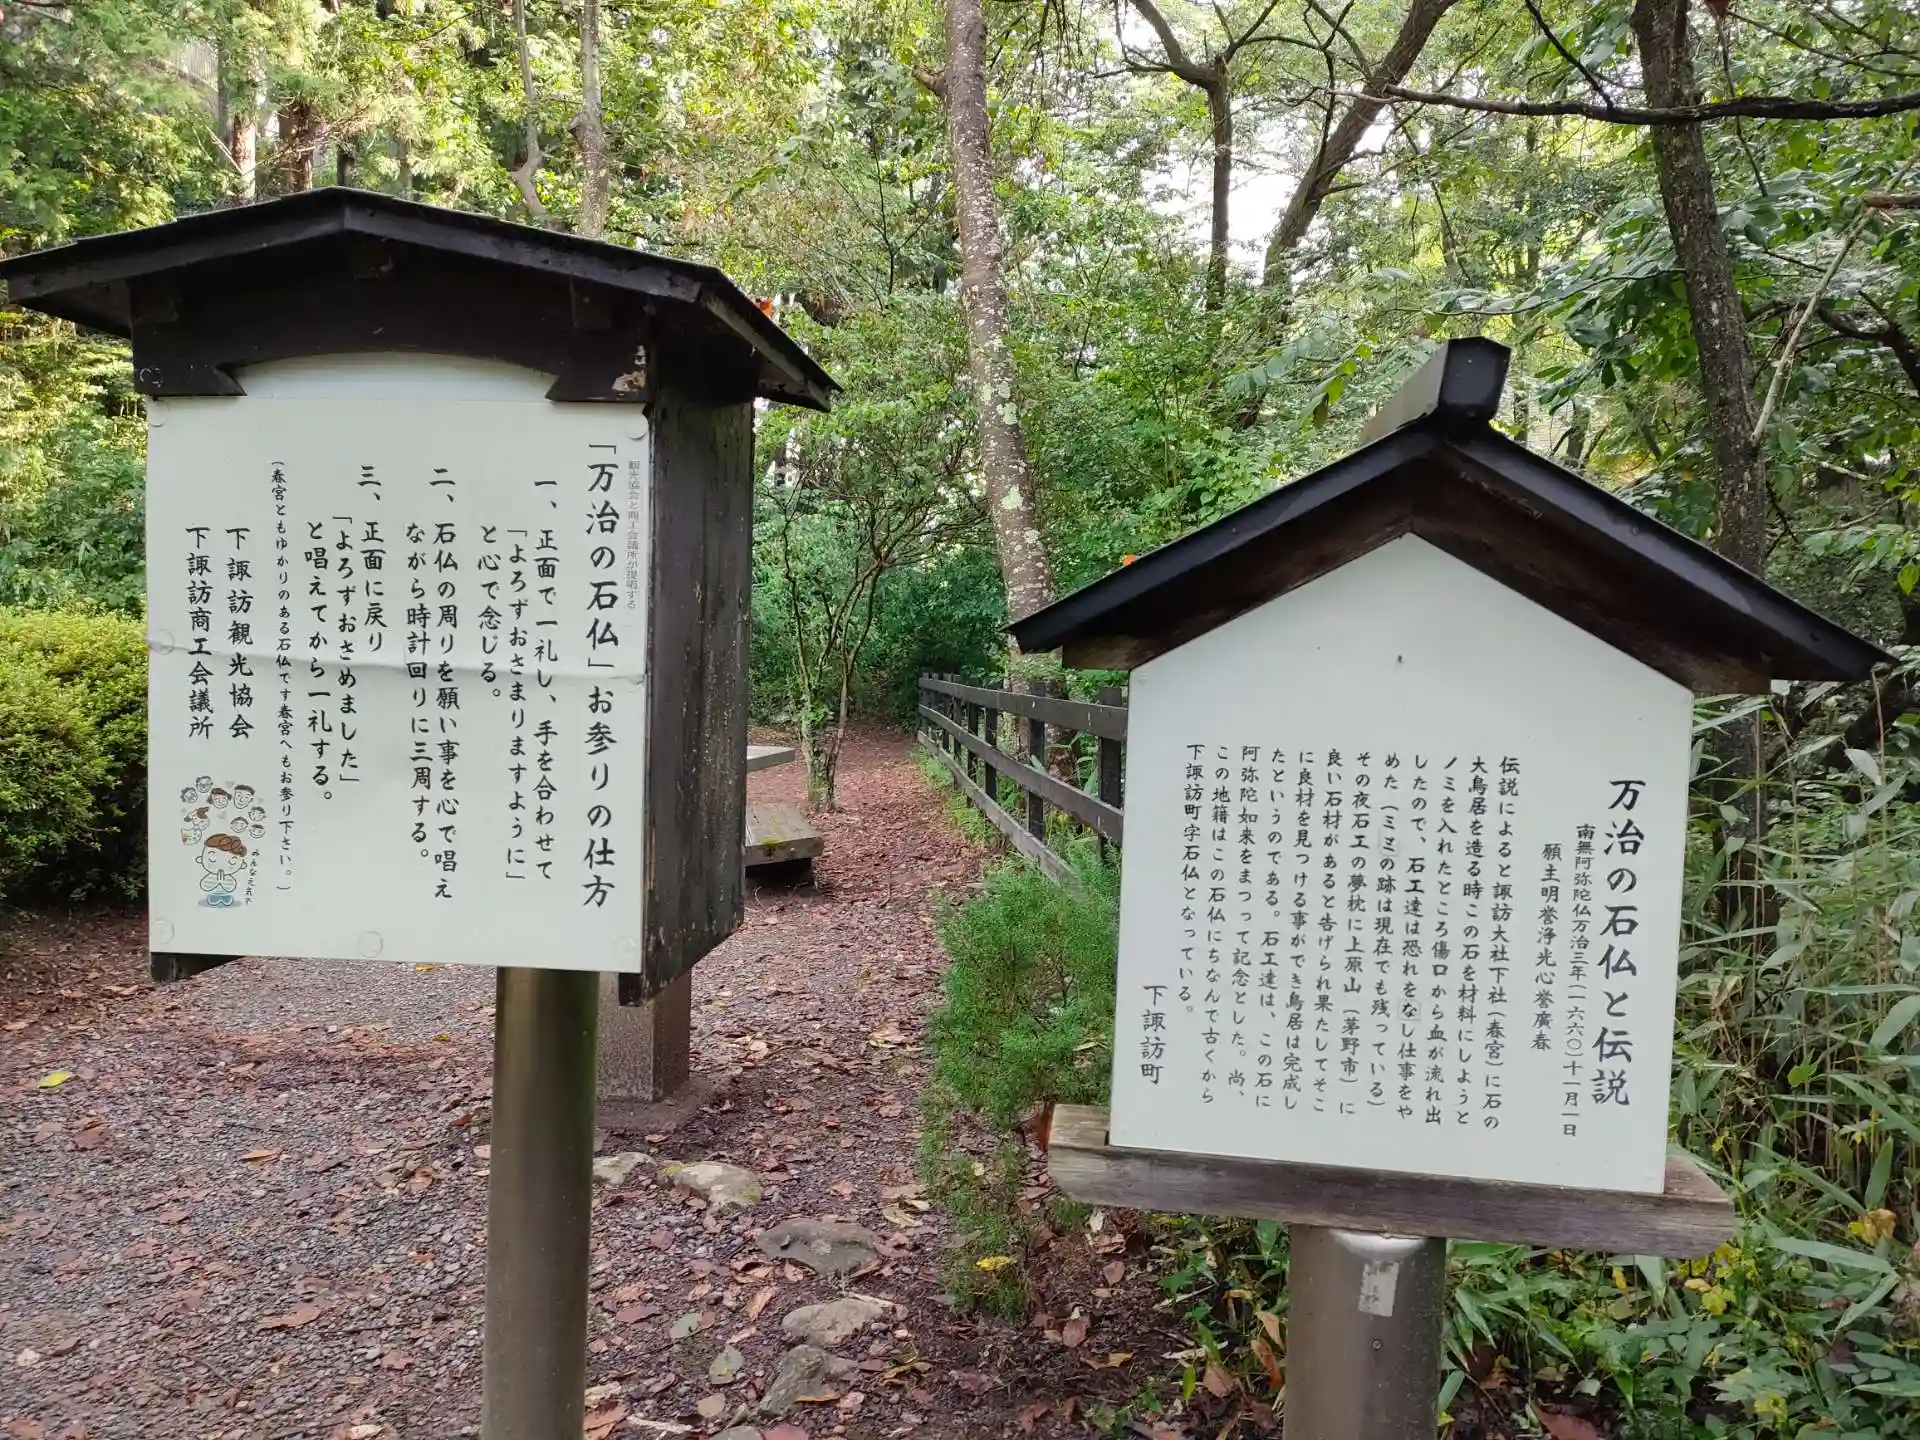 観光協会と商工会議所が提唱する
「万治の石仏」お参りの仕方
一、正面で一礼し、手を合わせて
「よろずおさまりますように」
と心で念じる。
二、石仏の周りを願い事を心で唱え
ながら時計回りに三周する。
三、正面に戻り
「よろずおさめました」
と唱えてから一礼する。
(春宮ともゆかりのある石仏です春宮へもお参り下さい。)
下諏訪観光協会
下諏訪商工会議所
みんな元気
万治の石仏と伝説
南無阿弥陀仏万治三年(一六六〇)十一月一日
願主明誉浄光心誉廣春
伝説によると諏訪大社下社(春宮)に石の
大鳥居を造る時この石を材料にしようと
ノミを入れたところ傷口から血が流れ出
したので、石工達は恐れをなし仕事をや
めた(ミミの跡は現在でも残っている)
その夜石工の夢枕に上原山(茅野市)に
良い石材があると告げられ果たしてそこ
に良材を見つける事ができ鳥居は完成し
たというのである。石工達は、この石に
阿弥陀如来をまつって記念とした。尚、
この地籍はこの石仏にちなんで古くから
下諏訪町字石仏となっている。
下諏訪町